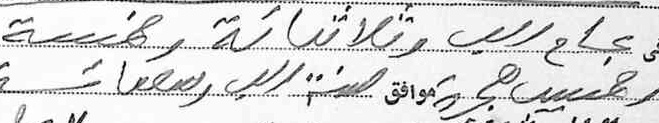 عام الف وثلاثمائة وخمسة
وخمسين هجرية موافق سنة الف وتسعمائة